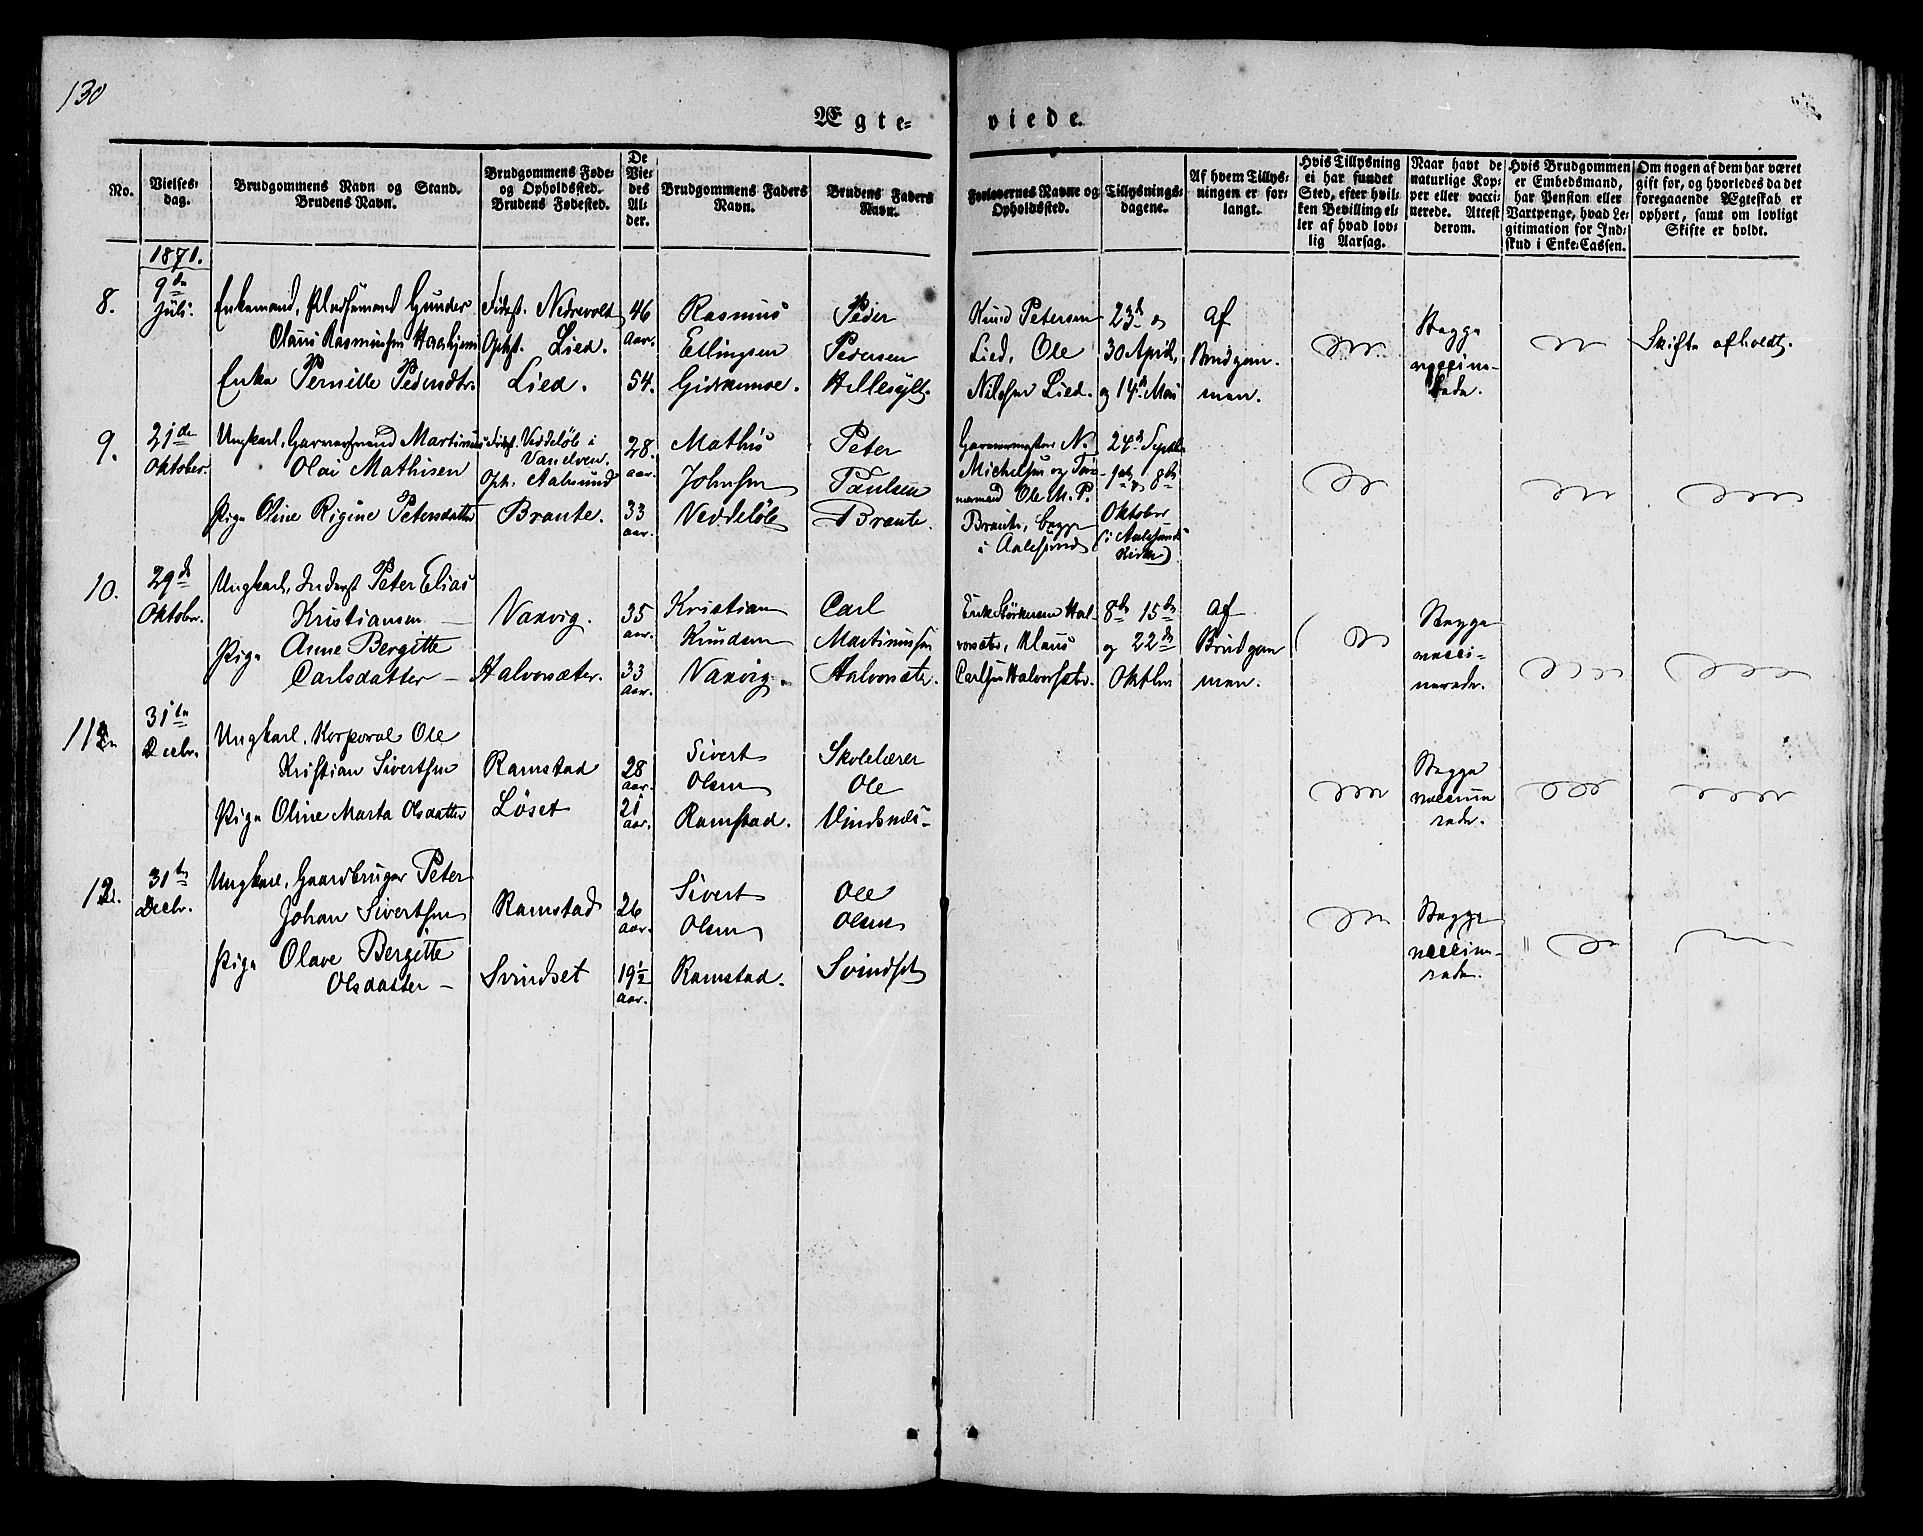 130
Ægte- viede.
No.
Vielses-
dag.
Brudgommens Navn og Stand.
Brudens Navn.
Brudgommens Føde-
og Opholdssted.
Brudens Fødested.
De
Vie-
des
Al-
der.
Brudgommens Faders
Navn.
Brudens Faders
Navn.
Forlovernes Navne og
Opholdssted.
Tillysnings-
dagene.
Af hvem Tillys-
ningen er for-
langt.
Hvis Tillysning
ei har fundet
Sted, efter hvil-
ken Bevilling el-
ler af hvad lov-
lig Aarsag.
Naar havt de
naturlige Kop-
per eller vacci-
nerede. Attest
derom.
Hvis Brudgommen
er Embedsmand,
har Pension eller
Vartpenge, hvad Le-
gitimation for Ind-
skud i Enke-Cassen.
Om nogen af dem har været
gift før, og hvorledes da det
foregaaende Ægteskab er
ophørt, samt om lovligt
Skifte er holdt.
1871.
8.
9de
Juli.
Enkemand, Pladsemand Gunder
Olaus Rasmussen
Enke Pernille Pedersdtr.
Fødest. Nedrevold
Ophst. Lied.
Lied.
46
aar.
54.
Rasmus
Erlingsen
Giskemoe.
Peder
Pedersen
Hellesylt.
Knud Petersen
Lied, Ole
Nilssen Lied.
23d og
30 April,
og 14d Mai
Af
Brudgom-
men.
Begge
vaccine-
rede.
Skifte afholdt.
9.
21de
Oktober.
Ungkarl, Garversvend Martinus
Olai Mathisen
Pige Oline Rigine Petersdatter
Fødst. Veddeløb i
Vanelven.
Oph. Aalesund
Braute.
28.
aar.
33
aar.
Mathis
Johnsen
Veddeløb
Peter
Paulsen
Braute.
Garvermester N.
Michelsen og
Ole M. P.
Braute, begge
i Aalesund
24d Septbr
1ste & 8de
Oktober
(i Aalesunds
Kirke)
10.
29de
Oktober.
Ungkarl, Inderst Peter Elias
Kristiansen
Pige Anne Bergitte
Carlsdatter —
Vaxvig.
Halvorsæter.
35
aar.
33
aar.
Kristian
Knudsen
Vaxvig.
Carl
Martinussen
Halvorsæter.
Erik Størkersen Hal-
vorsæter, Klaus
Carlsen Halvorsæter.
8de 15de
og 22de
Oktbr
Af
Brudgom
men.
Begge
vacci-
nerede.
11.
31te
Decbr.
Ungkarl, Korporal Ole
Kristian Sivertsen
Pige Oline Marta Olsdatter
Ramstad
Løset
28
aar.
21
aar.
Sivert
Olsen
Ramstad.
Skolelærer
Ole
Vindsnes
Begge
vaccine
rede.
12.
31te
Decbr.
Ungkarl, Gaardbruger Peter
Johan Sivertsen
Pige Olave Bergitte
Olsdatter —
Ramstad
Svindset
26
aar.
19½
aar.
Sivert
Olsen
Ramstad.
Ole
Olsen
Svindset
Begge
vaccine-
rede.